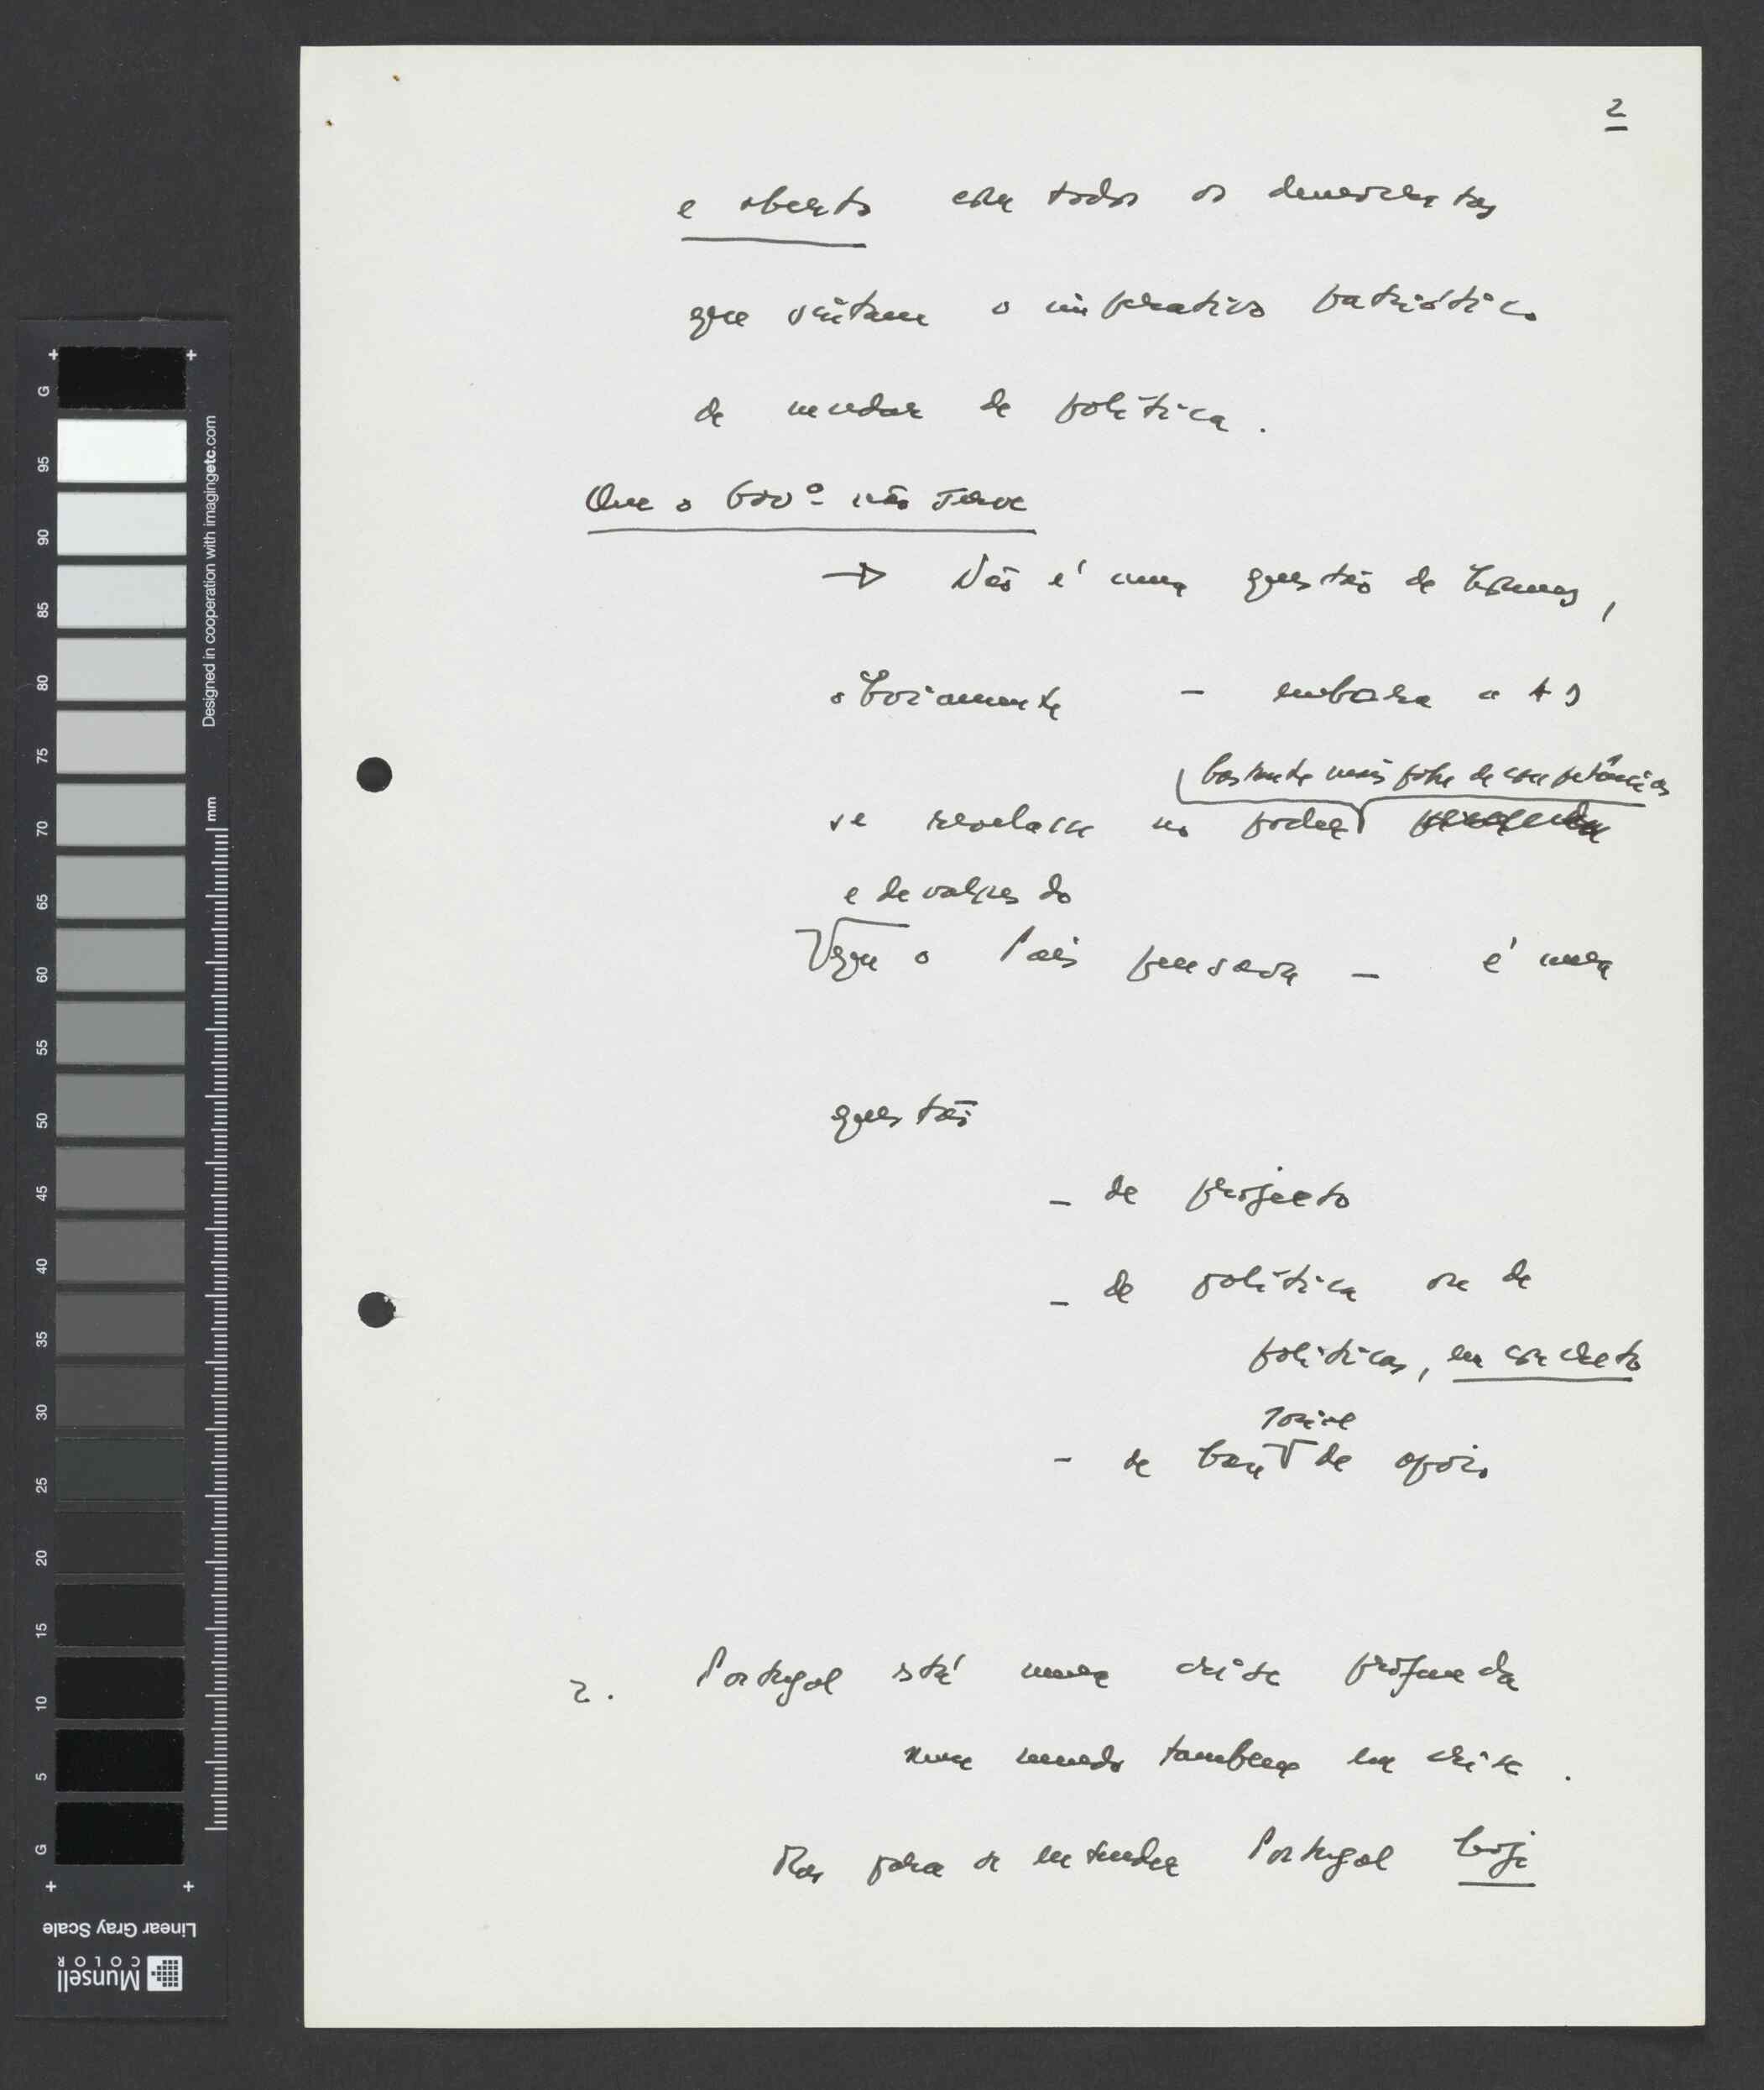 2
e aberto com todos os democratas
que sintam o imperativo patriótico
de mudar de política.
Que o Govº não serve
→ Não é uma questão de homens,
obviamente – embora a AD
bastante mais pobre de competências
se revelasse no poder
e de valores do
que o País pensava – é uma
questão
– de projecto
– de política ou de
políticas, em concreto
– de base de apoio
2. Portugal está numa crise profunda
num mundo também em crise.
Mas para se entender Portugal hoje
G
95
90
85
80
75
70
65
60
55
50
45
40
35
30
25
20
15
10
5
G
mm
Designed in cooperation with imagingetc.com
Linear Gray Scale
Munsell
COLOR